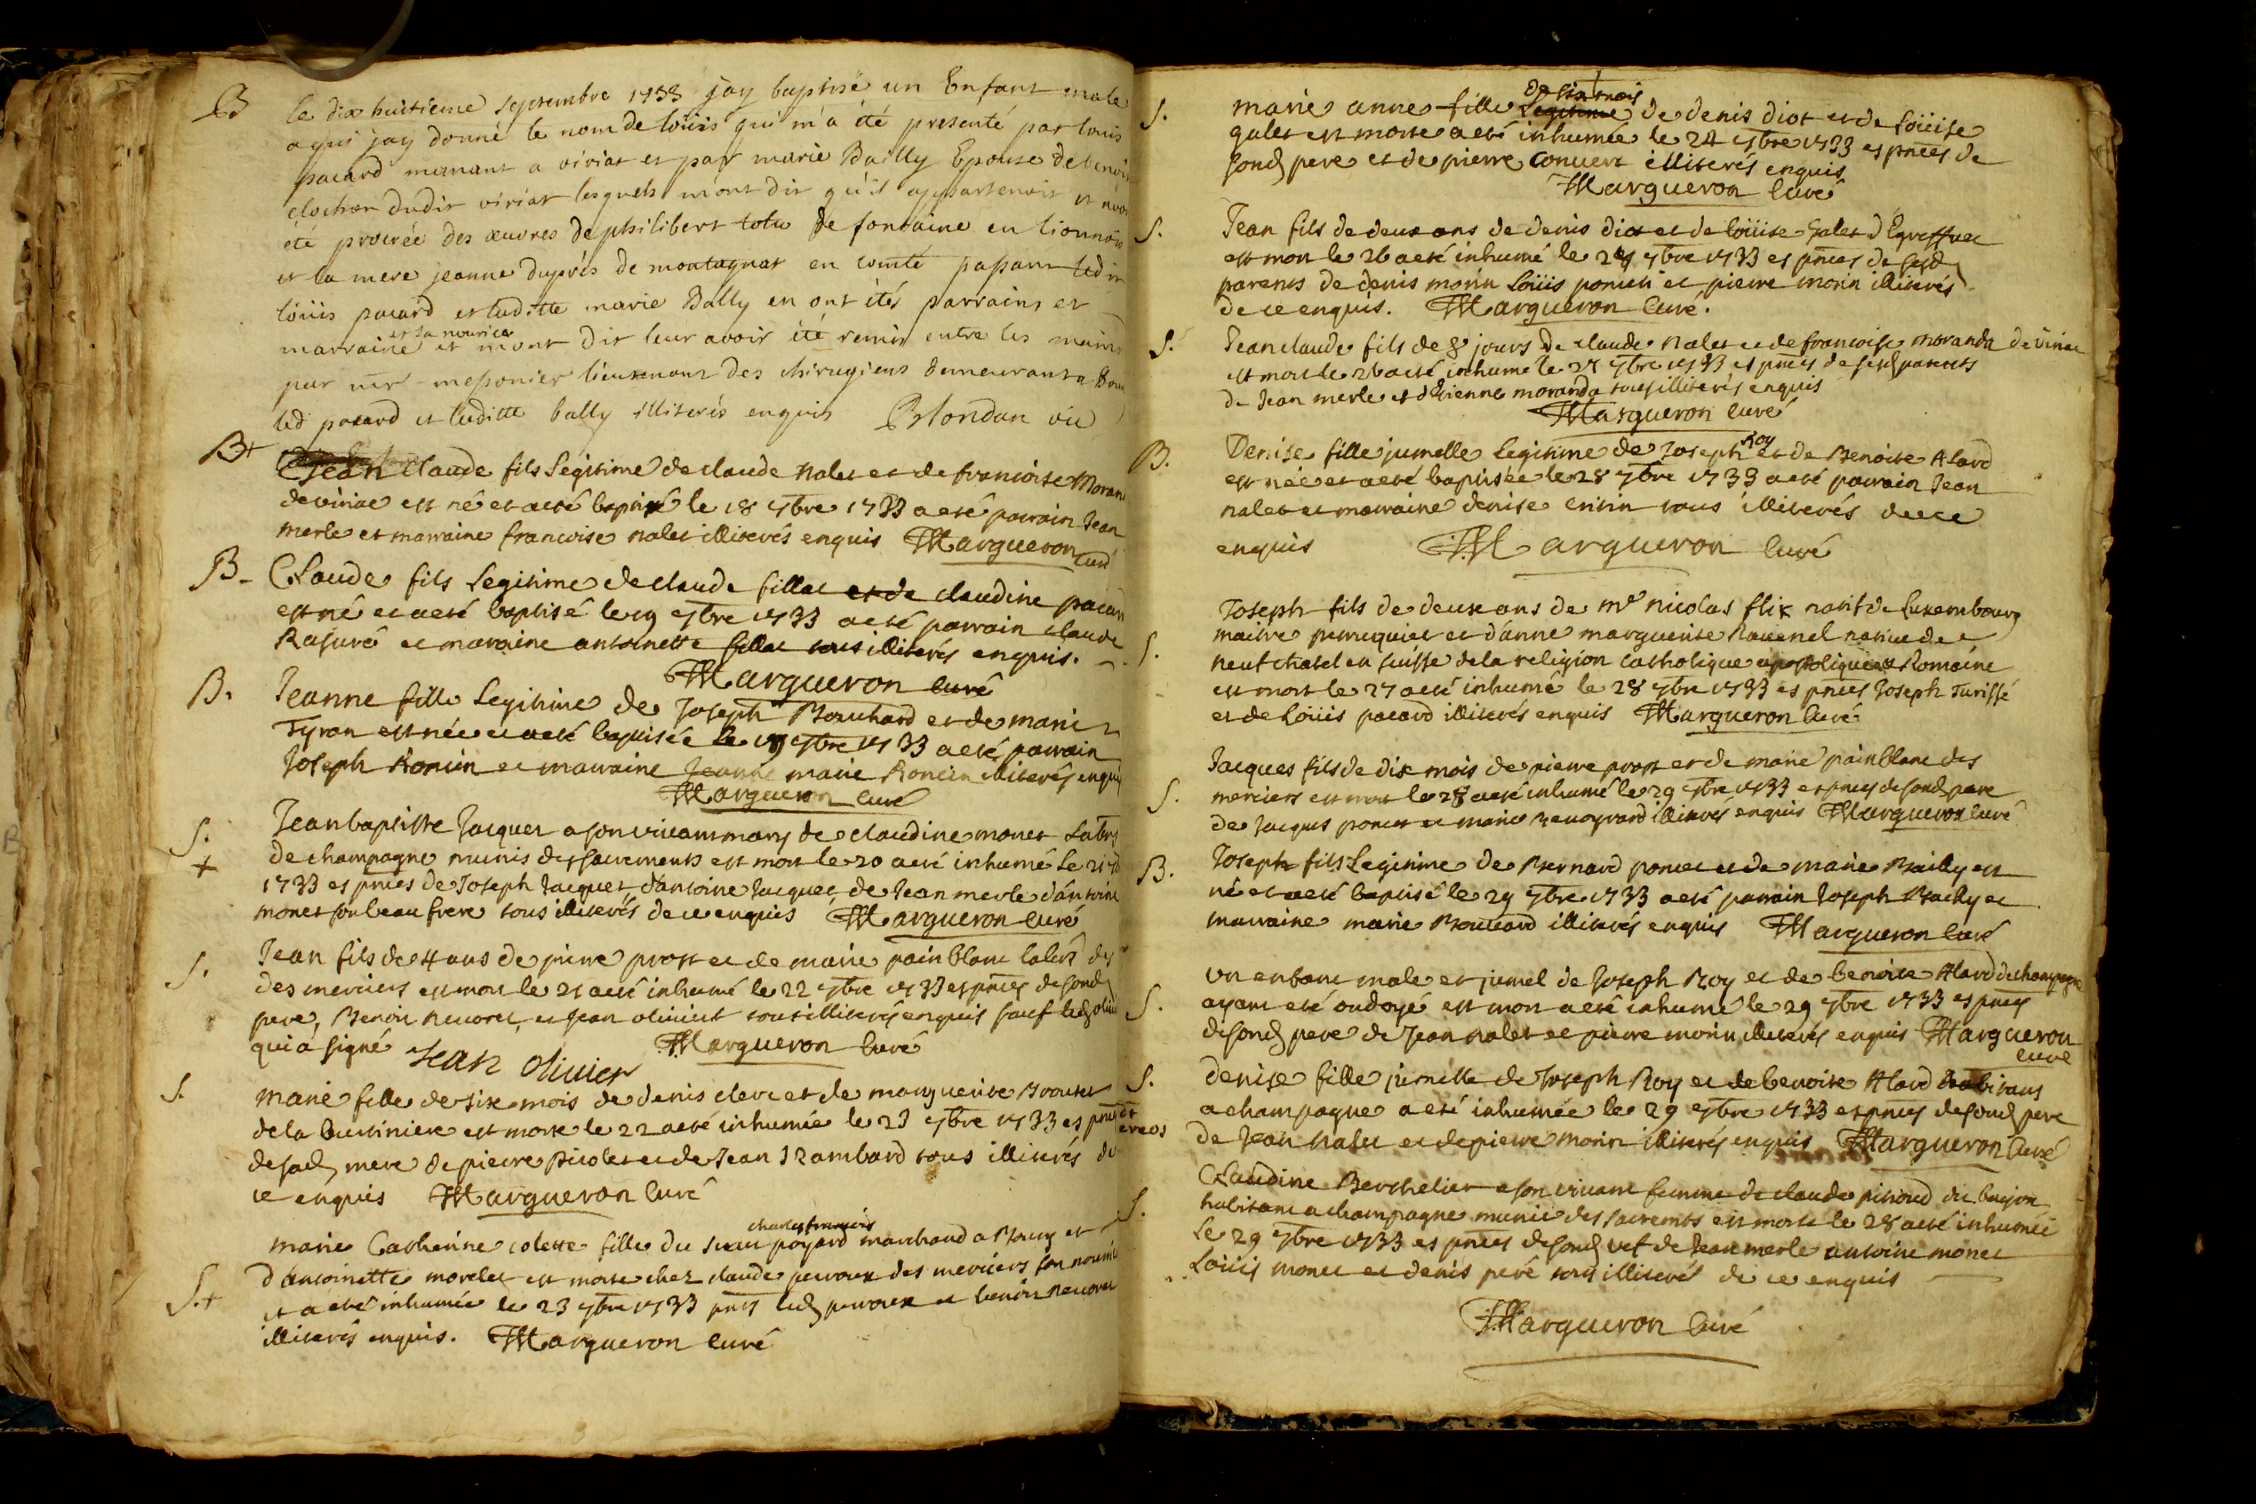 B le dix huitieme septembre 1733 jay baptisé un Enfant male
a qui jay donné le nom de loüis qui m'a été presenté par louis
pacard manant a viriat et par marie Bailly Epouse de benoi
clocher dudit viriat lesquels mont dit qu'il appartenoit et avoi
été procrée des œuvres de philibert de fontaine en lionnois
et la mere jeanne duprés de montagnat en comté passant ledit
loüis pacard et laditte marie Bally en ont étés parrains et
et sa nourice
marraine et mont dit leur avoir été remis entre les mains
par mr mesonier lieutenant des chirugiens demeurant a Bour
led pacard et laditte bally illiterés enquis Blondan vic
B+ Jean claude fils legitime de claude nalet et de francoise Moran
de viriac est né et aeté baptisé le 18 7bre 1733 aeté parrain Jean
merle et marraine francoise nalet illiterés enquis Margueron curé
B- Claude fils legitime de claude fillat et de claudine pacard
est né et aeté baptisé le 19 7bre 1733 aeté parrain claude
Rasuré et maraine antoinette fillat tous illiterés enquis.
Margueron curé
B. Jeanne fille legitime de Joseph Bouchard et de marie
Tyran est née et aeté baptisée le 19 7bre 1733 aeté parrain
Joseph Roncin et marraine Jeanne marie Roncin illiterés enquis
Margueron curé
S. Jean baptiste Jacquet a son vivant mary de claudine monet labr
+ de champagne munis des sacrements est mort le 20 aeté inhumé le 21 7b
1733 es pnces de Joseph Jacquet, d'antoine Jacquet, de Jean merle d'antoine
monet son beau frere tous illiterés de ce enquis Margueron curé
S. Jean fils de 4 ans de pierre prost et de marie pain blanc labrs des
des merciers est mort le 21 aeté inhumé le 22 7bre 1733 es pnces de sond
pere, Benoit revoret, et Jean olivier tous illiterés enquis sauf led olivi
qui a signé Jean Olivier Margueron curé
S. marie fille de six mois de denis clerc et de marguerite Brouter
de la est morte le 22 aeté inhumée le 23 7bre 1733 es pnces
de sad mere de pierre picolet et de Jean Rambard tous illiterés de
ce enquis Margueron curé
charles françois
marie Catherine colette fille du sieur poyard marchand a Bourg et
S.+ d'antoinette morelet est morte chez claude perroux des merciers son nouricie
et a eté inhumée le 23 7bre 1733 pnts led perroux et benoit revoret
illiterés enquis. Margueron curé
de six mois
S. marie anne fille legitime de denis diot et de loüise
galet est morte aeté inhumée le 24 7bre 1733 es pnces de
sond pere et de pierre convert illiterés enquis
Margueron curé
S. Jean fils de deux ans de denis diot et de loüise galet d'Egreffuet
est mort le 26 aeté inhumé le 27 7bre 1733 es pnces de sesd
parents de denis morin loüis poncin et pierre morin illiterés
de ce enquis. Margueron curé.
S. Jean claude fils de 8 jours de claude nalet et de francoise moranda de viriac
est mort le 26 aeté inhumé le 27 7bre 1733 es pnces de sesd parents
de Jean merle et d'Etienne moranda tous illiterés enquis
Margueron curé
B. Denise fille jumelle legitime de Joseph Roy et de Benoite Alard
est née et aeté baptisée le 28 7bre 1733 aeté parrain Jean
nalet et marraine denise tous illiterés de ce
enquis Margueron curé
Joseph fils de deux ans de mre nicolas flix natif de Luxembourg
maitre perruquier et d'anne marguerite Ravenel native de
S. neufchatel en suisse de la religion catholique apostolique et Romaine
est mort le 27 aeté inhumé le 28 7bre 1733 es pnces Joseph Turissé
et de Loüis pacard illiterés enquis Margueron curé
Jacques fils de dix mois de pierre prost et de marie pain blanc des
S. merciers est mort le 28 aeté inhumé le 29 7bre 1733 es pnces de sond pere
de Jacques poncet et marie revoyrard illiterés enquis Margueron curé
B. Joseph fils legitime de Bernard poncet et de marie Bailly est
né et aeté baptisé le 29 7bre 1733 aeté parrain Joseph Bailly et
marraine marie Boutard illiterés enquis Margueron curé
S. un enfant male et jumel de Joseph Roy et de benoite Alard de champagne
ayant eté ondoyé est mort aeté inhumé le 29 7bre 1733 es pnces
de sond pere de Jean nalet et pierre morin illiterés enquis Margueron
curé
S. denise fille jumelle de Joseph Roy et de benoite Alard habitans
a champagne a eté inhumée le 29 7bre 1733 es pnces de sond pere
de Jean nalet et de pierre morin illiterés enquis Margueron curé
S. Claudine Berthelier a son vivant femme de claude pithoud du
habitant a champagne munie des sacremts est morte le 28 aeté inhumée
le 29 7bre 1733 es pnces de sond vef de Jean merle antoine monet
Loüis monet et denis peré tous illiterés de ce enquis
Margueron curé